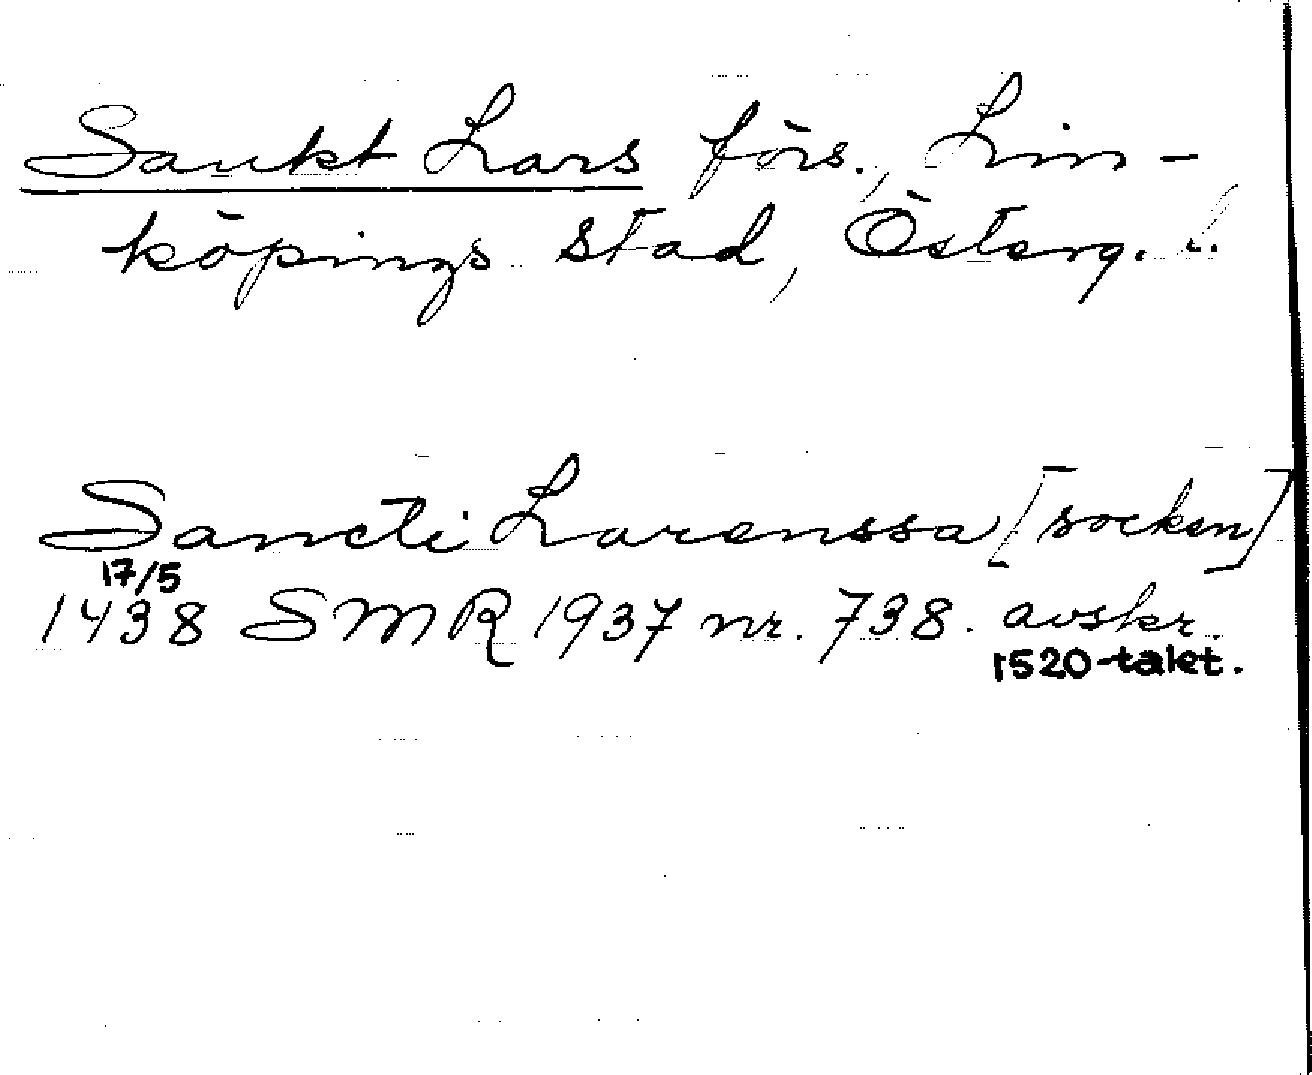 Sankt Lars förs., Lin-
köpings stad, Österg. l.
Sancti Larenssa [socken]
17/5
1438 SMR 1937 nr. 738. avskr.
1520-talet.